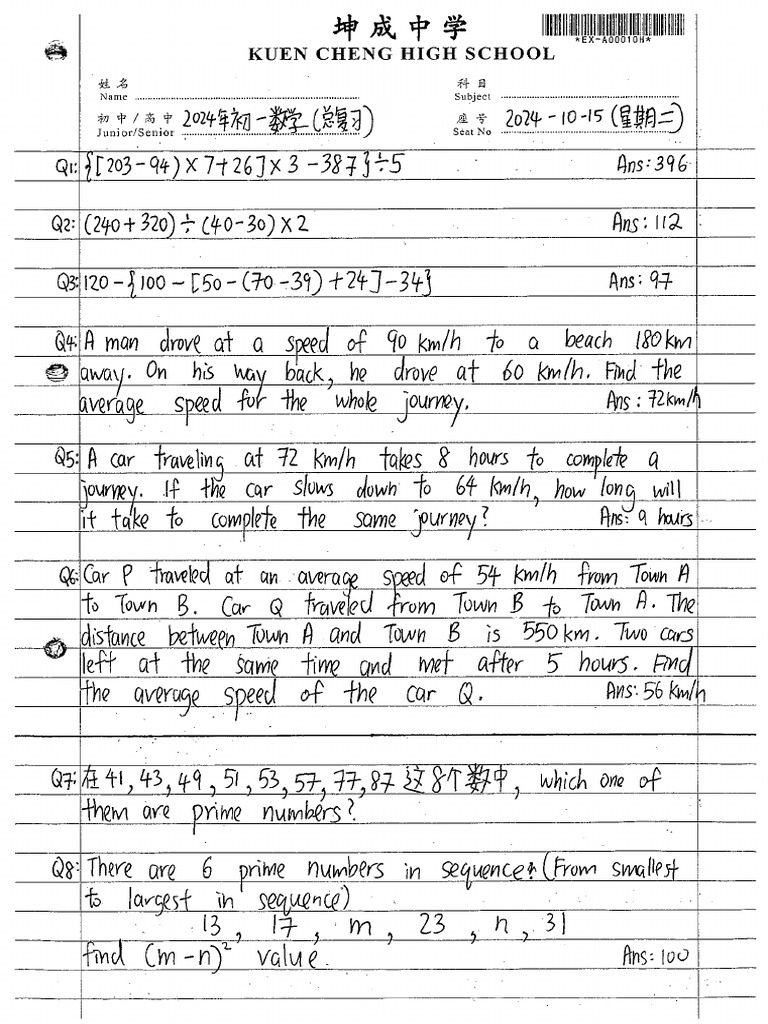 坤成中学
*EX-A00010H*
KUEN CHENG HIGH SCHOOL
姓名 Name
科目 Subject
初中/高中 Junior/Senior 2024年初一数学(总复习)
座号 Seat No 2024-10-15 (星期二)
Q1: {[203-94)×7+26]×3-387}÷5 Ans: 396
Q2: (240+320)÷(40-30)×2 Ans: 112
Q3: 120-{100-[50-(70-39)+24]-34} Ans: 97
Q4: A man drove at a speed of 90 km/h to a beach 180km
away. On his way back, he drove at 60 km/h. Find the
average speed for the whole journey. Ans: 72km/h
Q5: A car traveling at 72 km/h takes 8 hours to complete a
journey. If the car slows down to 64 km/h, how long will
it take to complete the same journey? Ans: 9 hours
Q6: Car P traveled at an average speed of 54 km/h from Town A
to Town B. Car Q traveled from Town B to Town A. The
distance between Town A and Town B is 550km. Two cars
left at the same time and met after 5 hours. Find
the average speed of the car Q. Ans: 56 km/h
Q7: 在41, 43, 49, 51, 53, 57, 77, 87 这8个数中, which one of
them are prime numbers?
Q8: There are 6 prime numbers in sequence: (From smallest
to largest in sequence)
13, 17, m, 23, n, 31
find (m-n)² value. Ans: 100